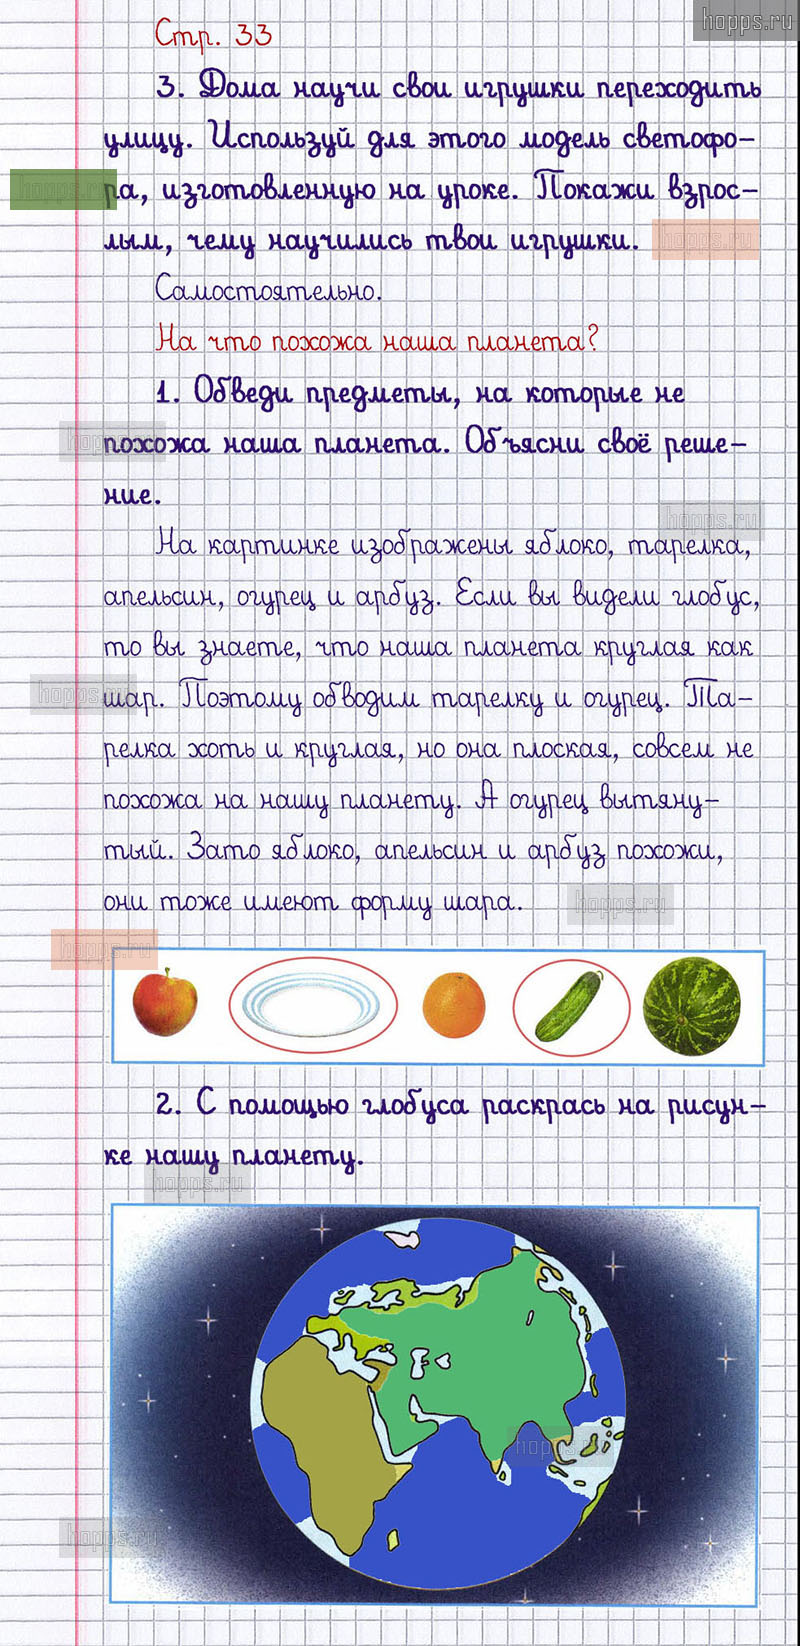 hopps.ru
Стр. 33
3. Дома научи свои игрушки переходить
улицу. Используй для этого модель светофо-
ра, изготовленную на уроке. Покажи взрос-
лым, чему научились твои игрушки.
Самостоятельно.
На что похожа наша планета?
1. Обведи предметы, на которые не
похожа наша планета. Объясни своё реше-
ние.
На картинке изображены яблоко, тарелка,
апельсин, огурец и арбуз. Если вы видели глобус,
то вы знаете, что наша планета круглая как
шар. Поэтому обводим тарелку и огурец. Та-
релка хоть и круглая, но она плоская, совсем не
похожа на нашу планету. А огурец вытяну-
тый. Зато яблоко, апельсин и арбуз похожи,
они тоже имеют форму шара.
2. С помощью глобуса раскрась на рисун-
ке нашу планету.